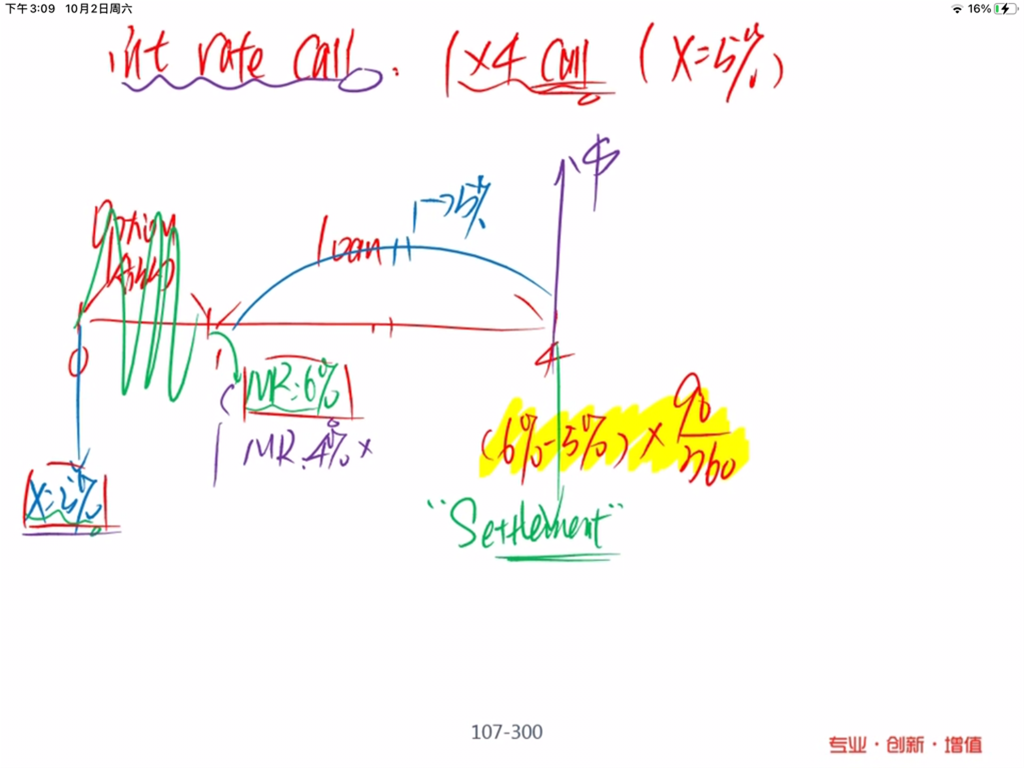 下午3:09 10月2日周六
16%
int rate call. 1×4 call (X=5%)
$
Option
loan → 5%
0 1 4
MR: 6%
MR. 4% ×
(6%-5%) × 90/360
X=5%
"Settlement"
107-300
专业·创新·增值